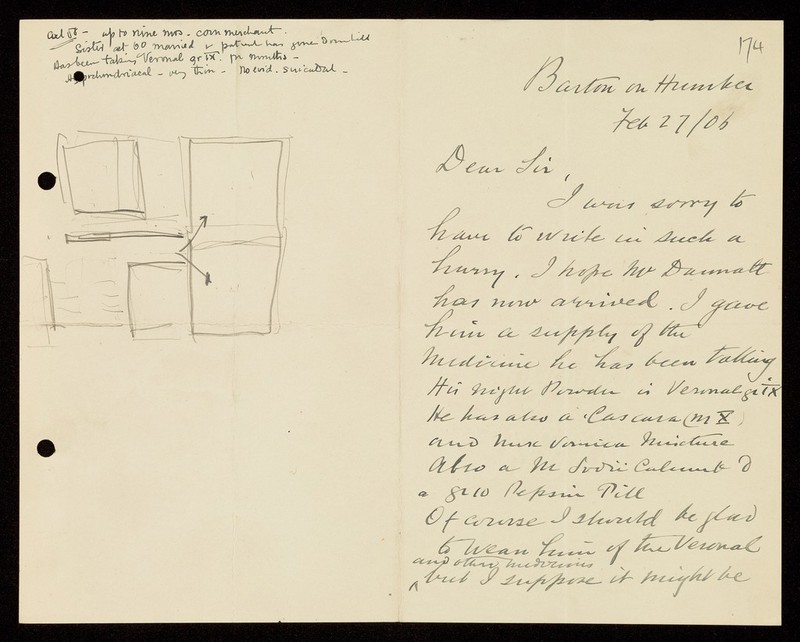 aet 58 - up to nine mos. corn merchant.
Sister aet 60 married & patient has gone downhill
Has been taking Veronal gr IX. for months -
Hypochondriacal - very thin - No evid. suicidal -
174
Barton on Humber
Feb 27/06
Dear Sir,
I was sorry to
have to write in such a
hurry. I hope Mr Dannatt
has now arrived. I gave
him a supply of the
Medicine he has been taking
His night Powder is Veronal gr IX
He has also a Cascara (m X)
and Nux Vomica Mixture
Also a M Sodii Calumb
a gr 10 Pepsin Pill
Of course I should be glad
to wean him of the Veronal
and other medicines
but I suppose it might be